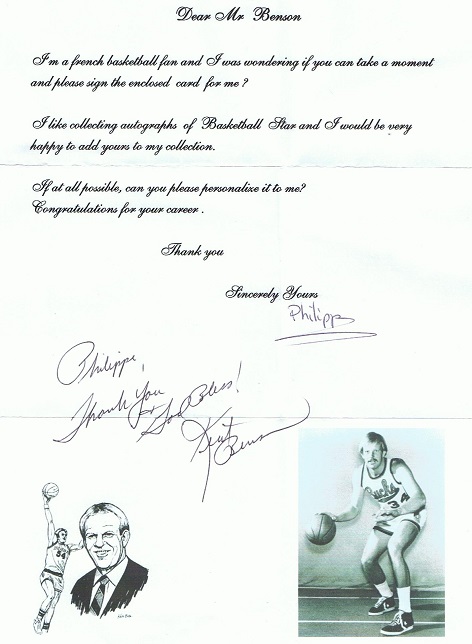 Dear Mr Benson
I'm a french basketball fan and I was wondering if you can take a moment
and please sign the enclosed card for me ?
I like collecting autographs of Basketball Star and I would be very
happy to add yours to my collection.
If at all possible, can you please personalize it to me?
Congratulations for your career .
Thank you
Sincerely Yours
Philippe
Philippe,
Thank You
+ God Bless!
Kent Benson
54
Bucks